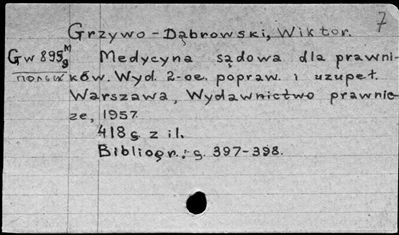 7
Grzywo-Dąbrowski, Wiktor.
Gw895M/9 Medycyna sądowa dla prawni-
польск ków. Wyd. 2-oe. popraw. i uzupeł.
Warszawa, Wydawnictwo prawnic-
ze, 1957.
418 s. z il.
Bibliogr.: s. 397-398.